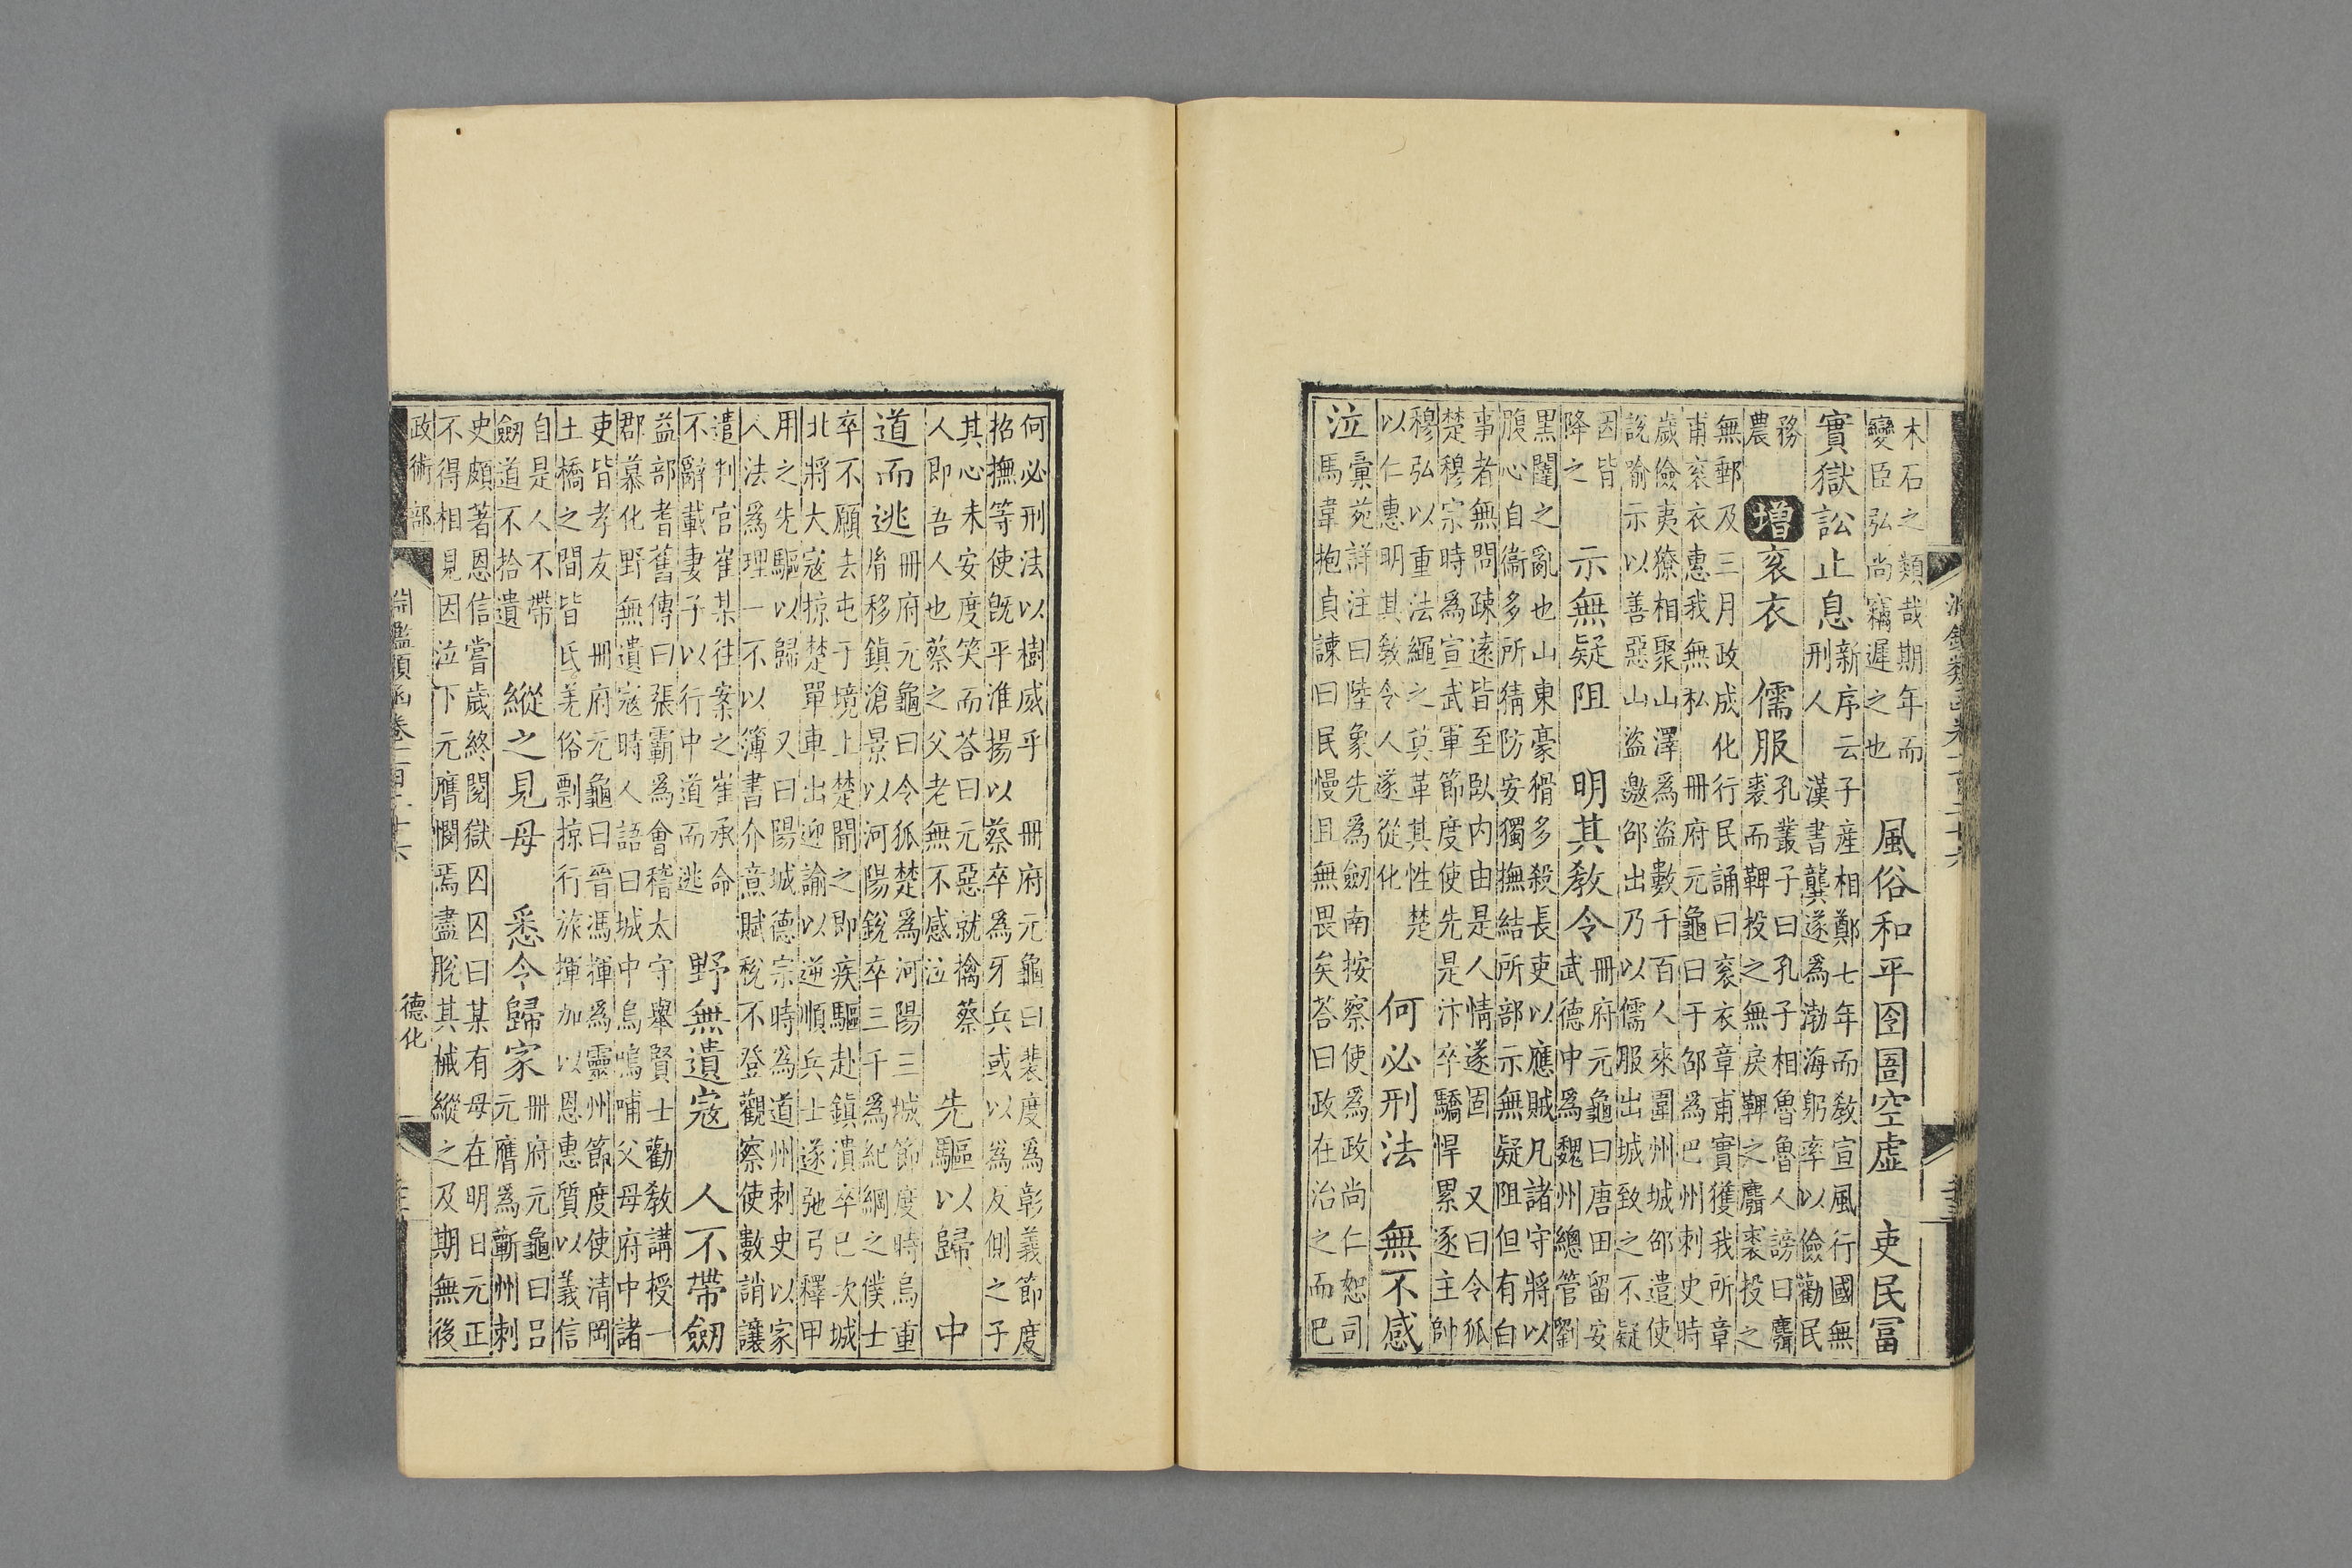 木石之類哉期年而
變臣弘尚竊遲之也
風俗和平囹圄空虛 吏民冨
實獄訟止息
新序云子産相鄭七年而教宣風行國無
刑人 漢書龔遂爲渤海躬率以儉勸民
務
農
增 衮衣 儒服
孔叢子曰孔子相魯魯人謗曰麛
裘而鞸投之無戾鞸之麛裘投之
無郵及三月政成化行民誦曰衮衣章甫實獲我所章
甫衮衣惠我無私 冊府元龜曰于邵爲巴州刺史時
歲儉夷獠相聚山澤爲盜數千百人來圍州城邵遣使
說喻示以善惡山盜邀邵出乃以儒服出城致之不疑
因皆
降之
示無疑阻 明其教令
冊府元龜曰唐田留安
武德中爲魏州總管劉
黑闥之亂也山東豪猾多殺長吏以應賊凡諸守將以
腹心自衞多所猜防安獨撫結所部示無疑阻但有白
事者無問疎遠皆至臥内由是人情遂固 又曰令狐
楚穆宗時爲宣武軍節度使先是汴卒驕悍累逐主帥
穆弘以重法繩之莫革其性楚
以仁惠明其教令人遂從化
何必刑法 無不感
泣
彚苑詳注曰陸象先爲劒南按察使爲政尚仁恕司
馬韋抱貞諫曰民慢且無畏矣荅曰政在治之而巳
何必刑法以樹威乎 冊府元龜曰裴度爲彰義節度
招撫等使旣平淮揚以蔡卒爲牙兵或以爲反側之子
其心未安度笑而荅曰元惡就擒蔡
人即吾人也蔡之父老無不感泣
先驅以歸 中
道而逃
冊府元龜曰令狐楚爲河陽三城節度時烏重
胤移鎮滄景以河陽銳卒三千爲紀綱之僕士
卒不願去屯于境上楚聞之即疾驅赴鎮潰卒已次城
北將大寇掠楚單車出迎諭以逆順兵士遂弛弓釋甲
用之先驅以歸 又曰陽城德宗時爲道州刺史以家
人法爲理一不以簿書介意賦稅不登觀察使數誚讓
遣判官崔某往案之崔承命
不辭載妻子以行中道而逃
野無遺寇 人不帶劒
益部耆舊傳曰張霸爲會稽太守舉賢士勸教講授一
郡慕化野無遺寇時人語曰城中烏鳴哺父母府中諸
吏皆孝友 冊府元龜曰晉馮禈爲靈州節度使清岡
土橋之間皆氐羌俗剽掠行旅揮加以恩惠質以義信
自是人不帶
劒道不拾遺
縱之見母 悉令歸家
冊府元龜曰呂
元膺爲蘄州刺
史頗著恩信嘗歲終閱獄囚囚曰某有母在明日元正
不得相見因泣下元膺憫焉盡脫其械縱之及期無後
政術部
淵鑑類函卷一百二十六
德化